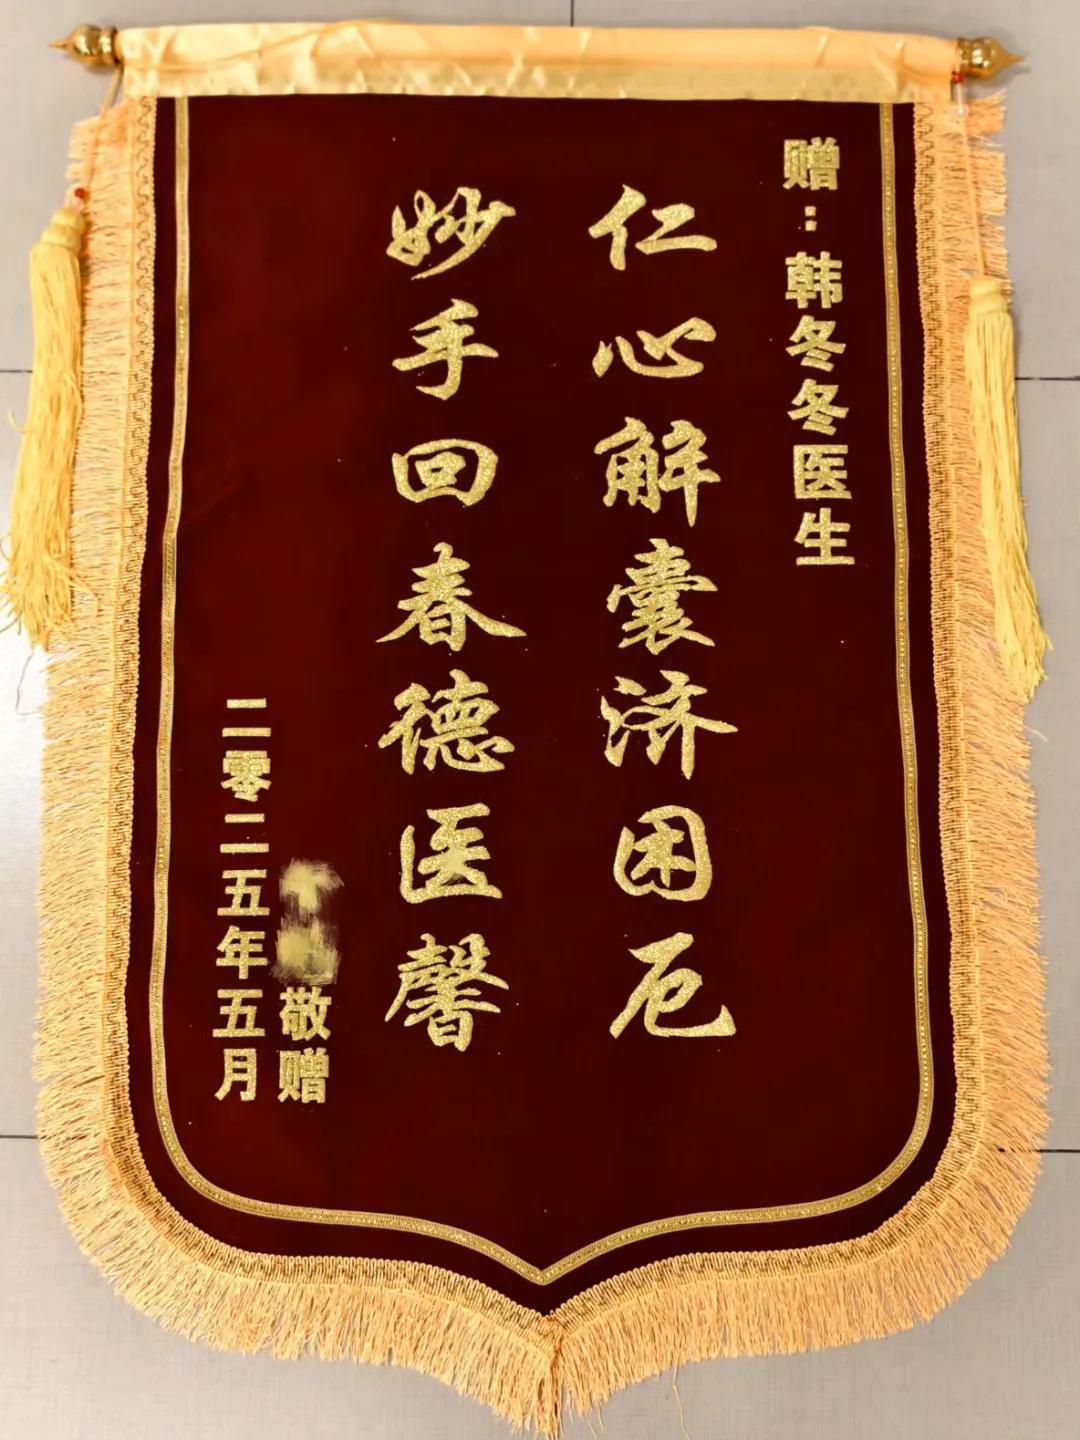 赠：韩冬冬医生
仁心解囊济困厄
妙手回春德医馨
敬赠
二零二五年五月